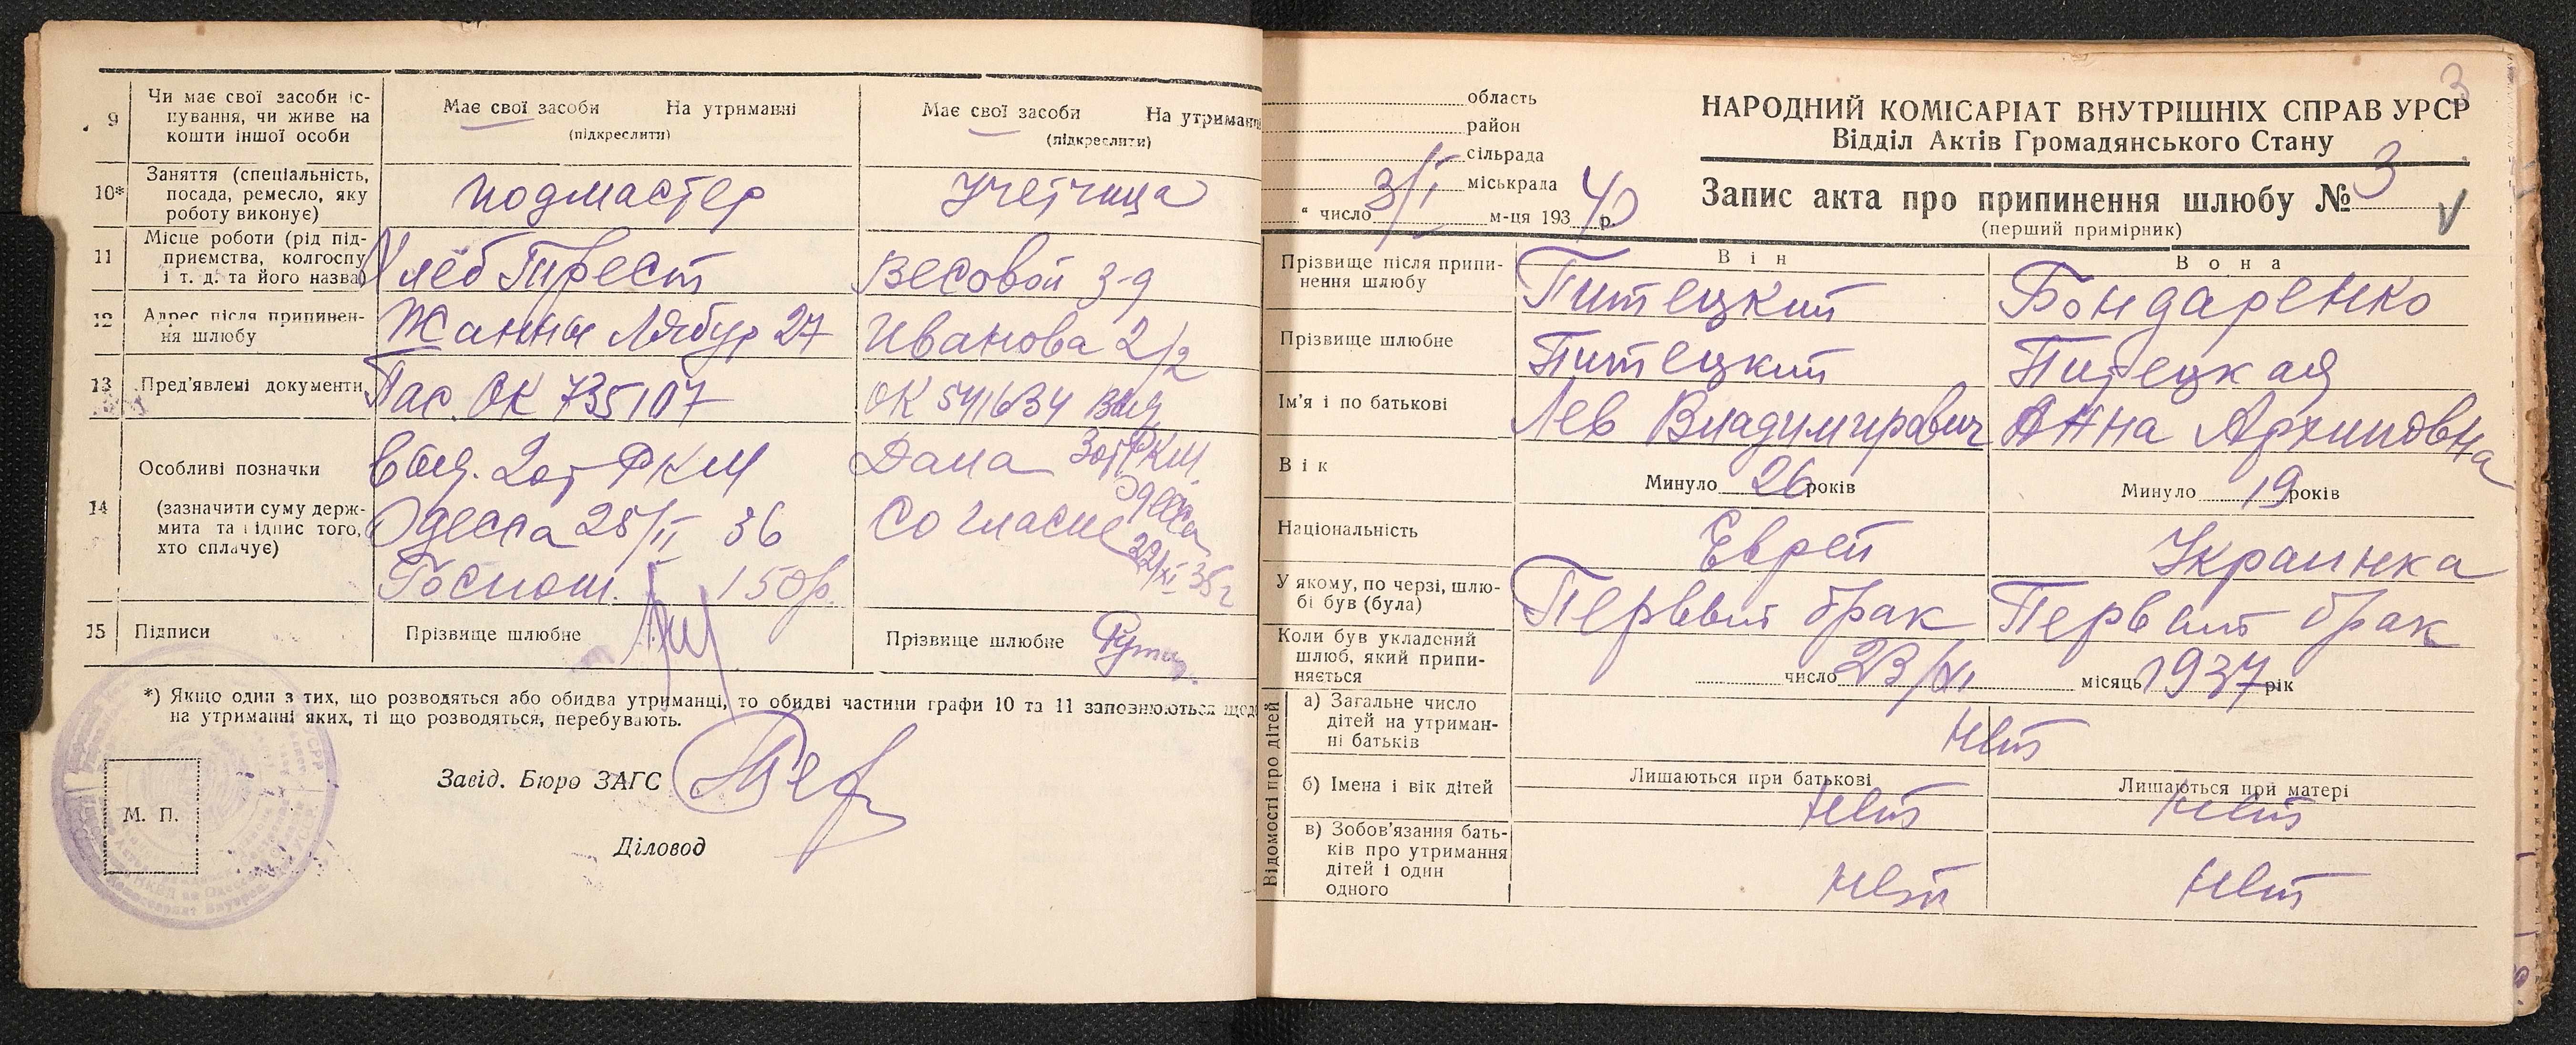 9 Чи має свої засоби іс-
нування, чи живе на
кошти іншої особи
Має свої засоби На утриманні
(підкреслити)
Має свої засоби На утриманні
(підкреслити)
10* Заняття (спеціальність,
посада, ремесло, яку
роботу виконує)
подмастер
Учетчица
11 Місце роботи (рід під-
приємства, колгоспу
і т. д. та його назва)
Хлеб Трест
Весовой з-д
12 Адрес після припинен-
ня шлюбу
Жанны Лябур 27
Иванова 2/2
13 Пред'явлені документи
Пас. ОК 735107
ОК 541634 выд
14 Особливі позначки
(зазначити суму держ-
мита та підпис того,
хто сплачує)
выд. 2 от РКМ
Одесса 25/II 36
Госпош. 150 р.
Дана 3 от РКМ
Одесса
согласие
22/XI 35 г
15 Підписи
Прізвище шлюбне
Прізвище шлюбне
*) Якщо один з тих, що розводяться або обидва утриманці, то обидві частини графи 10 та 11 заповнюються щодо
на утриманні яких, ті що розводяться, перебувають.
Завід. Бюро ЗАГС
М. П.
Діловод
область
район
сільрада
міськрада
" число 3/I м-ця 193 40 р.
3
НАРОДНИЙ КОМІСАРІАТ ВНУТРІШНІХ СПРАВ УРСР
Відділ Актів Громадянського Стану
Запис акта про припинення шлюбу № 3
(перший примірник)
Він
Вона
Прізвище після припи-
нення шлюбу
Питецкий
Бондаренко
Прізвище шлюбне
Питецкий
Питецкая
Ім'я і по батькові
Лев Владимирович
Анна Архиповна
Вік
Минуло 26 років
Минуло 19 років
Національність
Еврей
Украинка
У якому, по черзі, шлю-
бі був (була)
Первый брак
Первый брак
Коли був укладений
шлюб, який припи-
няється
число 23/XI місяць 1937 рік
Відомості про дітей
а) Загальне число
дітей на утриман-
ні батьків
нет
б) Імена і вік дітей
Лишаються при батькові
нет
Лишаються при матері
нет
в) Зобов'язання бать-
ків про утримання
дітей і один
одного
нет
нет